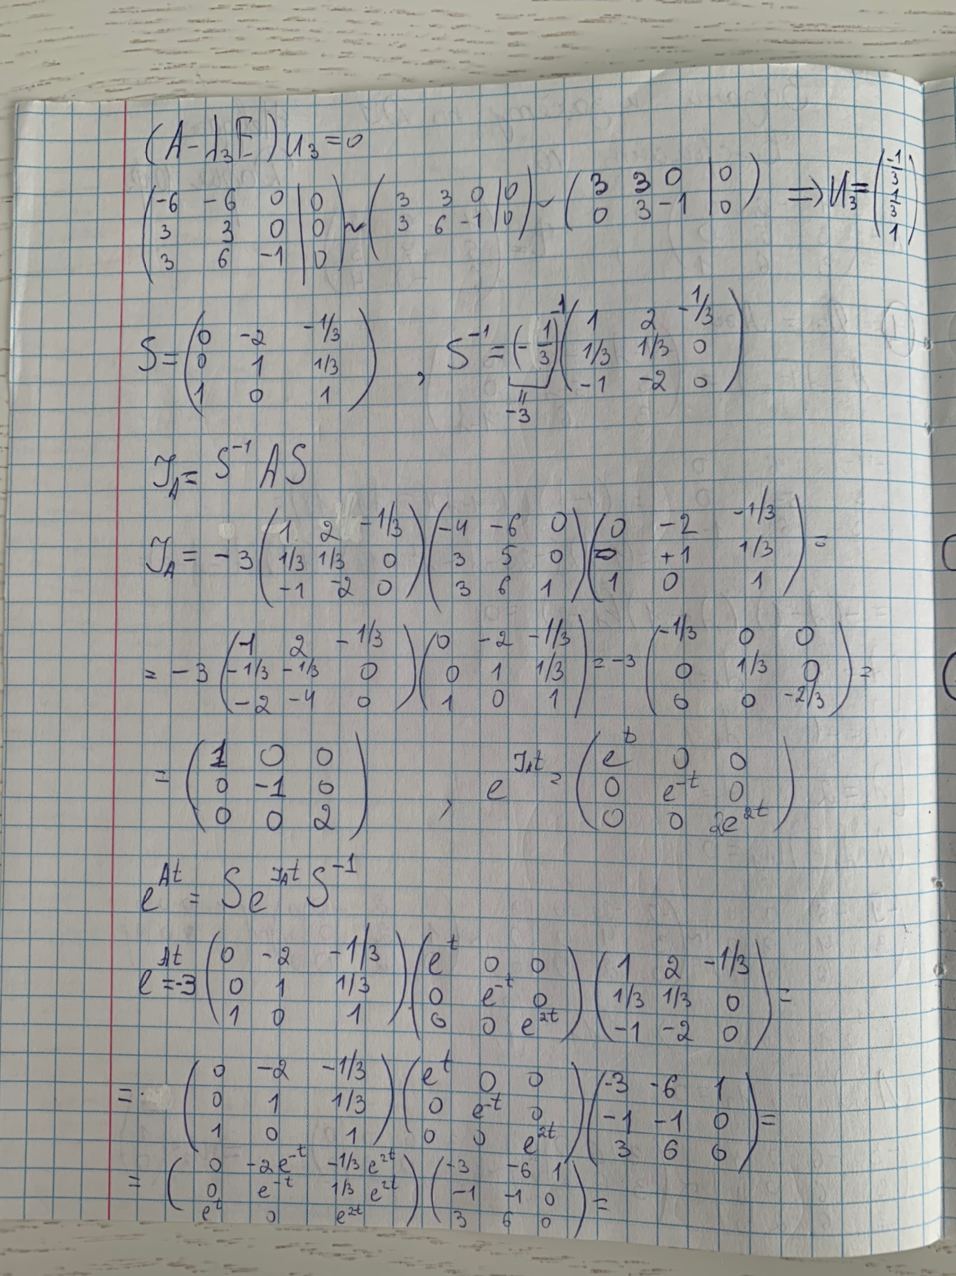 (A-λ₃E)u₃=0
(-6 -6 0 | 0; 3 3 0 | 0; 3 6 -1 | 0) ~ (3 3 0 | 0; 3 6 -1 | 0) ~ (3 3 0 | 0; 0 3 -1 | 0) => U₃ = (-1/3; 1/3; 1)
S = (0 -2 -1/3; 0 1 1/3; 1 0 1), S⁻¹ = (-1/3)⁻¹ (1 2 -1/3; 1/3 1/3 0; -1 -2 0)
" -3
J_A = S⁻¹AS
J_A = -3 (1 2 -1/3; 1/3 1/3 0; -1 -2 0) (-4 -6 0; 3 5 0; 3 6 1) (0 -2 -1/3; 0 +1 1/3; 1 0 1) =
= -3 (1 2 -1/3; -1/3 -1/3 0; -2 -4 0) (0 -2 -1/3; 0 1 1/3; 1 0 1) = -3 (-1/3 0 0; 0 1/3 0; 0 0 -2/3) =
= (1 0 0; 0 -1 0; 0 0 2), e^{J_A t} = (e^t 0 0; 0 e^{-t} 0; 0 0 2e^{2t})
e^{At} = S e^{J_A t} S⁻¹
e^{At} = -3 (0 -2 -1/3; 0 1 1/3; 1 0 1) (e^t 0 0; 0 e^{-t} 0; 0 0 e^{2t}) (1 2 -1/3; 1/3 1/3 0; -1 -2 0) =
= (0 -2 -1/3; 0 1 1/3; 1 0 1) (e^t 0 0; 0 e^{-t} 0; 0 0 e^{2t}) (-3 -6 1; -1 -1 0; 3 6 0) =
= (0 -2e^{-t} -1/3 e^{2t}; 0 e^{-t} 1/3 e^{2t}; e^t 0 e^{2t}) (-3 -6 1; -1 -1 0; 3 6 0) =